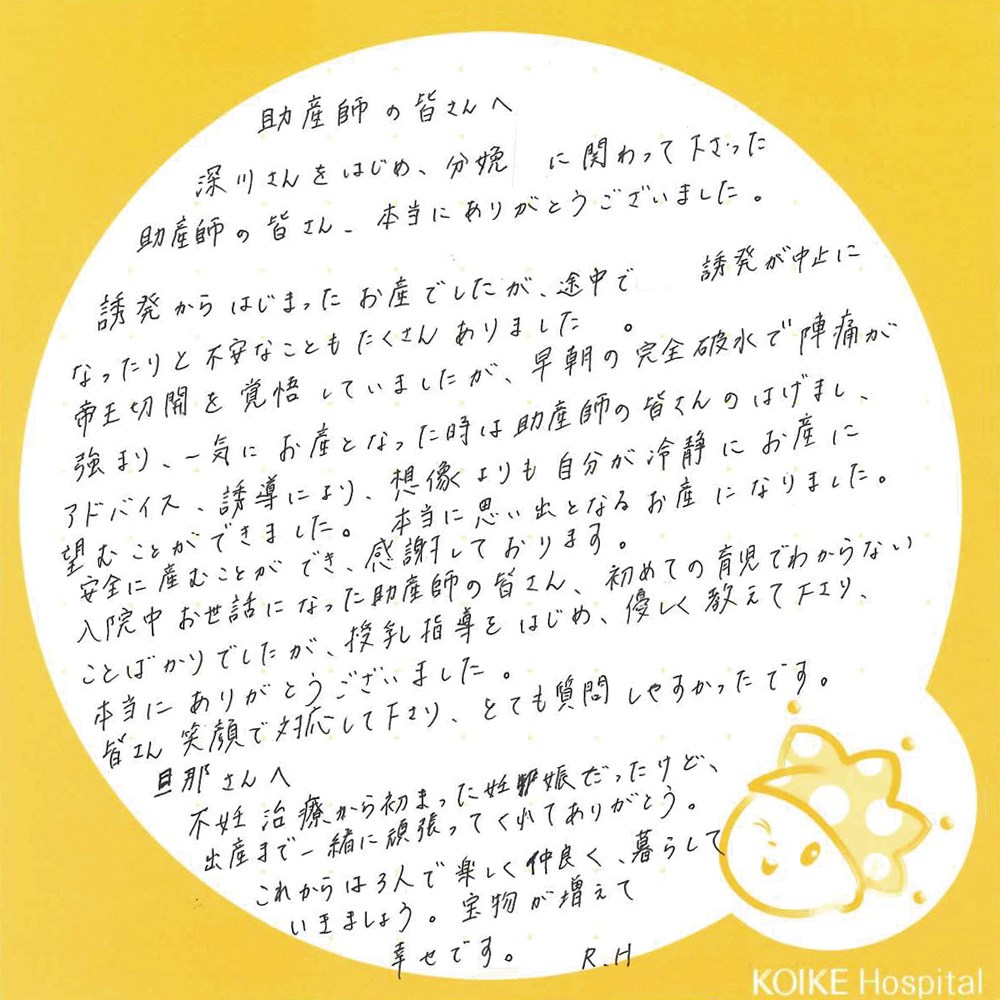 助産師の皆さんへ
深川さんをはじめ、分娩 に関わって下さった
助産師の皆さん、本当にありがとうございました。
誘発からはじまったお産でしたが、途中で 誘発が中止に
なったりと不安なこともたくさんありました 。
帝王切開を覚悟していましたが、早朝の完全破水で陣痛が
強まり、一気にお産となった時は助産師の皆さんのはげまし、
アドバイス、誘導により、想像よりも自分が冷静にお産に
望むことができました。 本当に思い出となるお産になりました。
安全に産むことができ、感謝しております。
入院中お世話になった助産師の皆さん、初めての育児でわからない
ことばかりでしたが、授乳指導をはじめ、優しく教えて下さり、
本当にありがとうございました。
皆さん笑顔で対応して下さり、とても質問しやすかったです。
旦那さんへ
不妊治療から初まった妊娠だったけど、
出産まで一緒に頑張ってくれてありがとう。
これからは3人で楽しく仲良く、暮らして
いきましょう。宝物が増えて
幸せです。 R.H
KOIKE Hospital